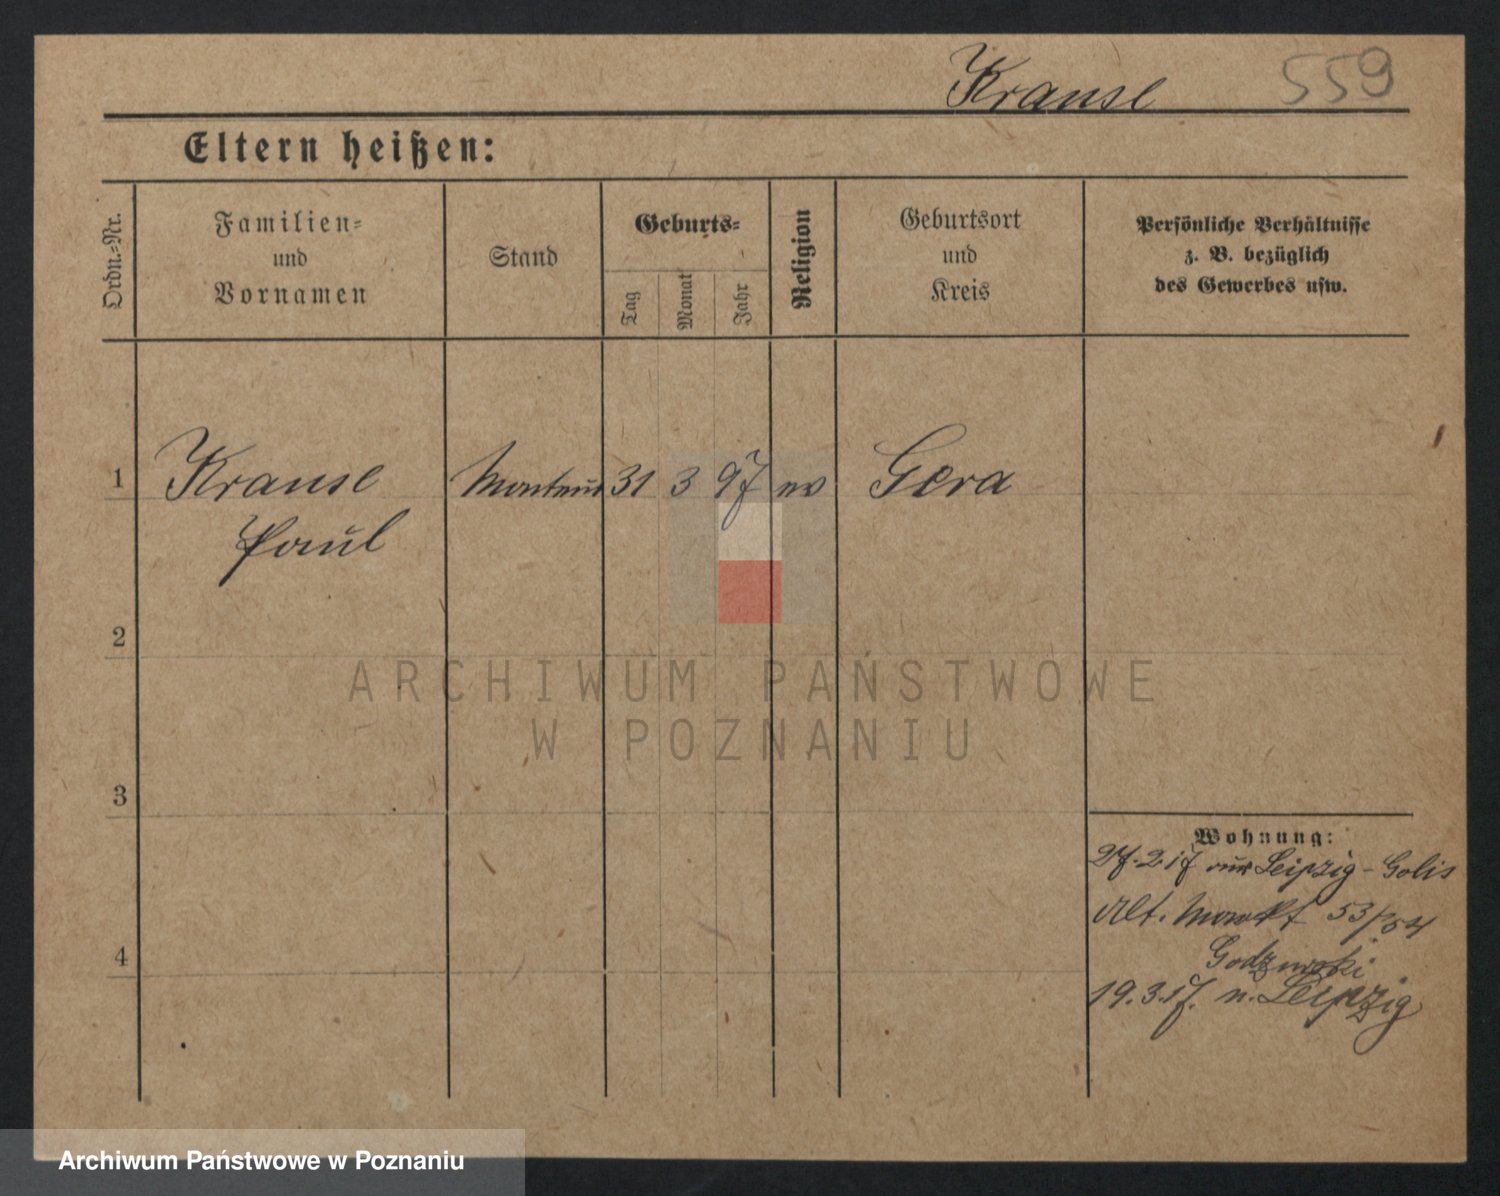 Krause 559
Eltern heißen:
Ordn.-Nr.
Familien-
und
Vornamen
Stand
Geburts-
Tag
Monat
Jahr
Religion
Geburtsort
und
Kreis
Persönliche Verhältnisse
z. B. bezüglich
des Gewerbes usw.
1 Krause Monteur 31 3 97 ev Gera
Paul
2
3
4
Wohnung:
27.2.17 aus Leipzig-Golis
Alt. Markt 53/54
19.3.17. n. Leipzig
ARCHIWUM PAŃSTWOWE
W POZNANIU
Archiwum Państwowe w Poznaniu